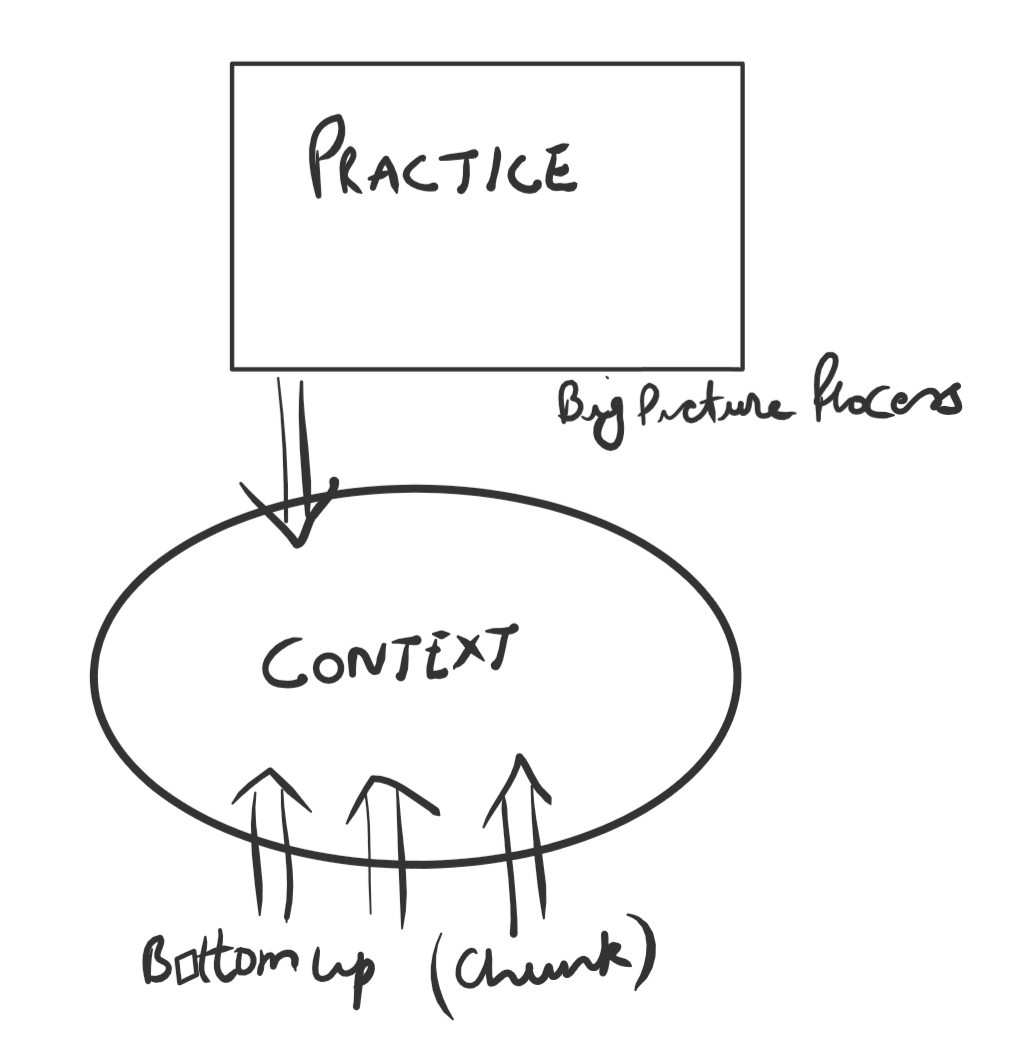 PRACTICE
Big Picture Process
CONTEXT
Bottom up (Chunk)